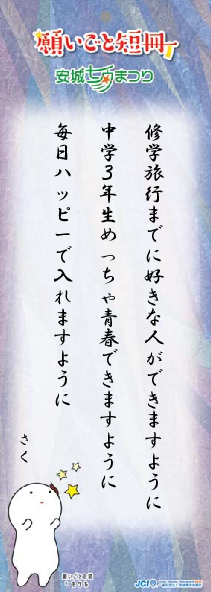 願いごと短冊
安城七夕まつり
修学旅行までに好きな人ができますように
中学3年生めっちゃ青春できますように
毎日ハッピーで入れますように
さく
願いごと短冊
JCI